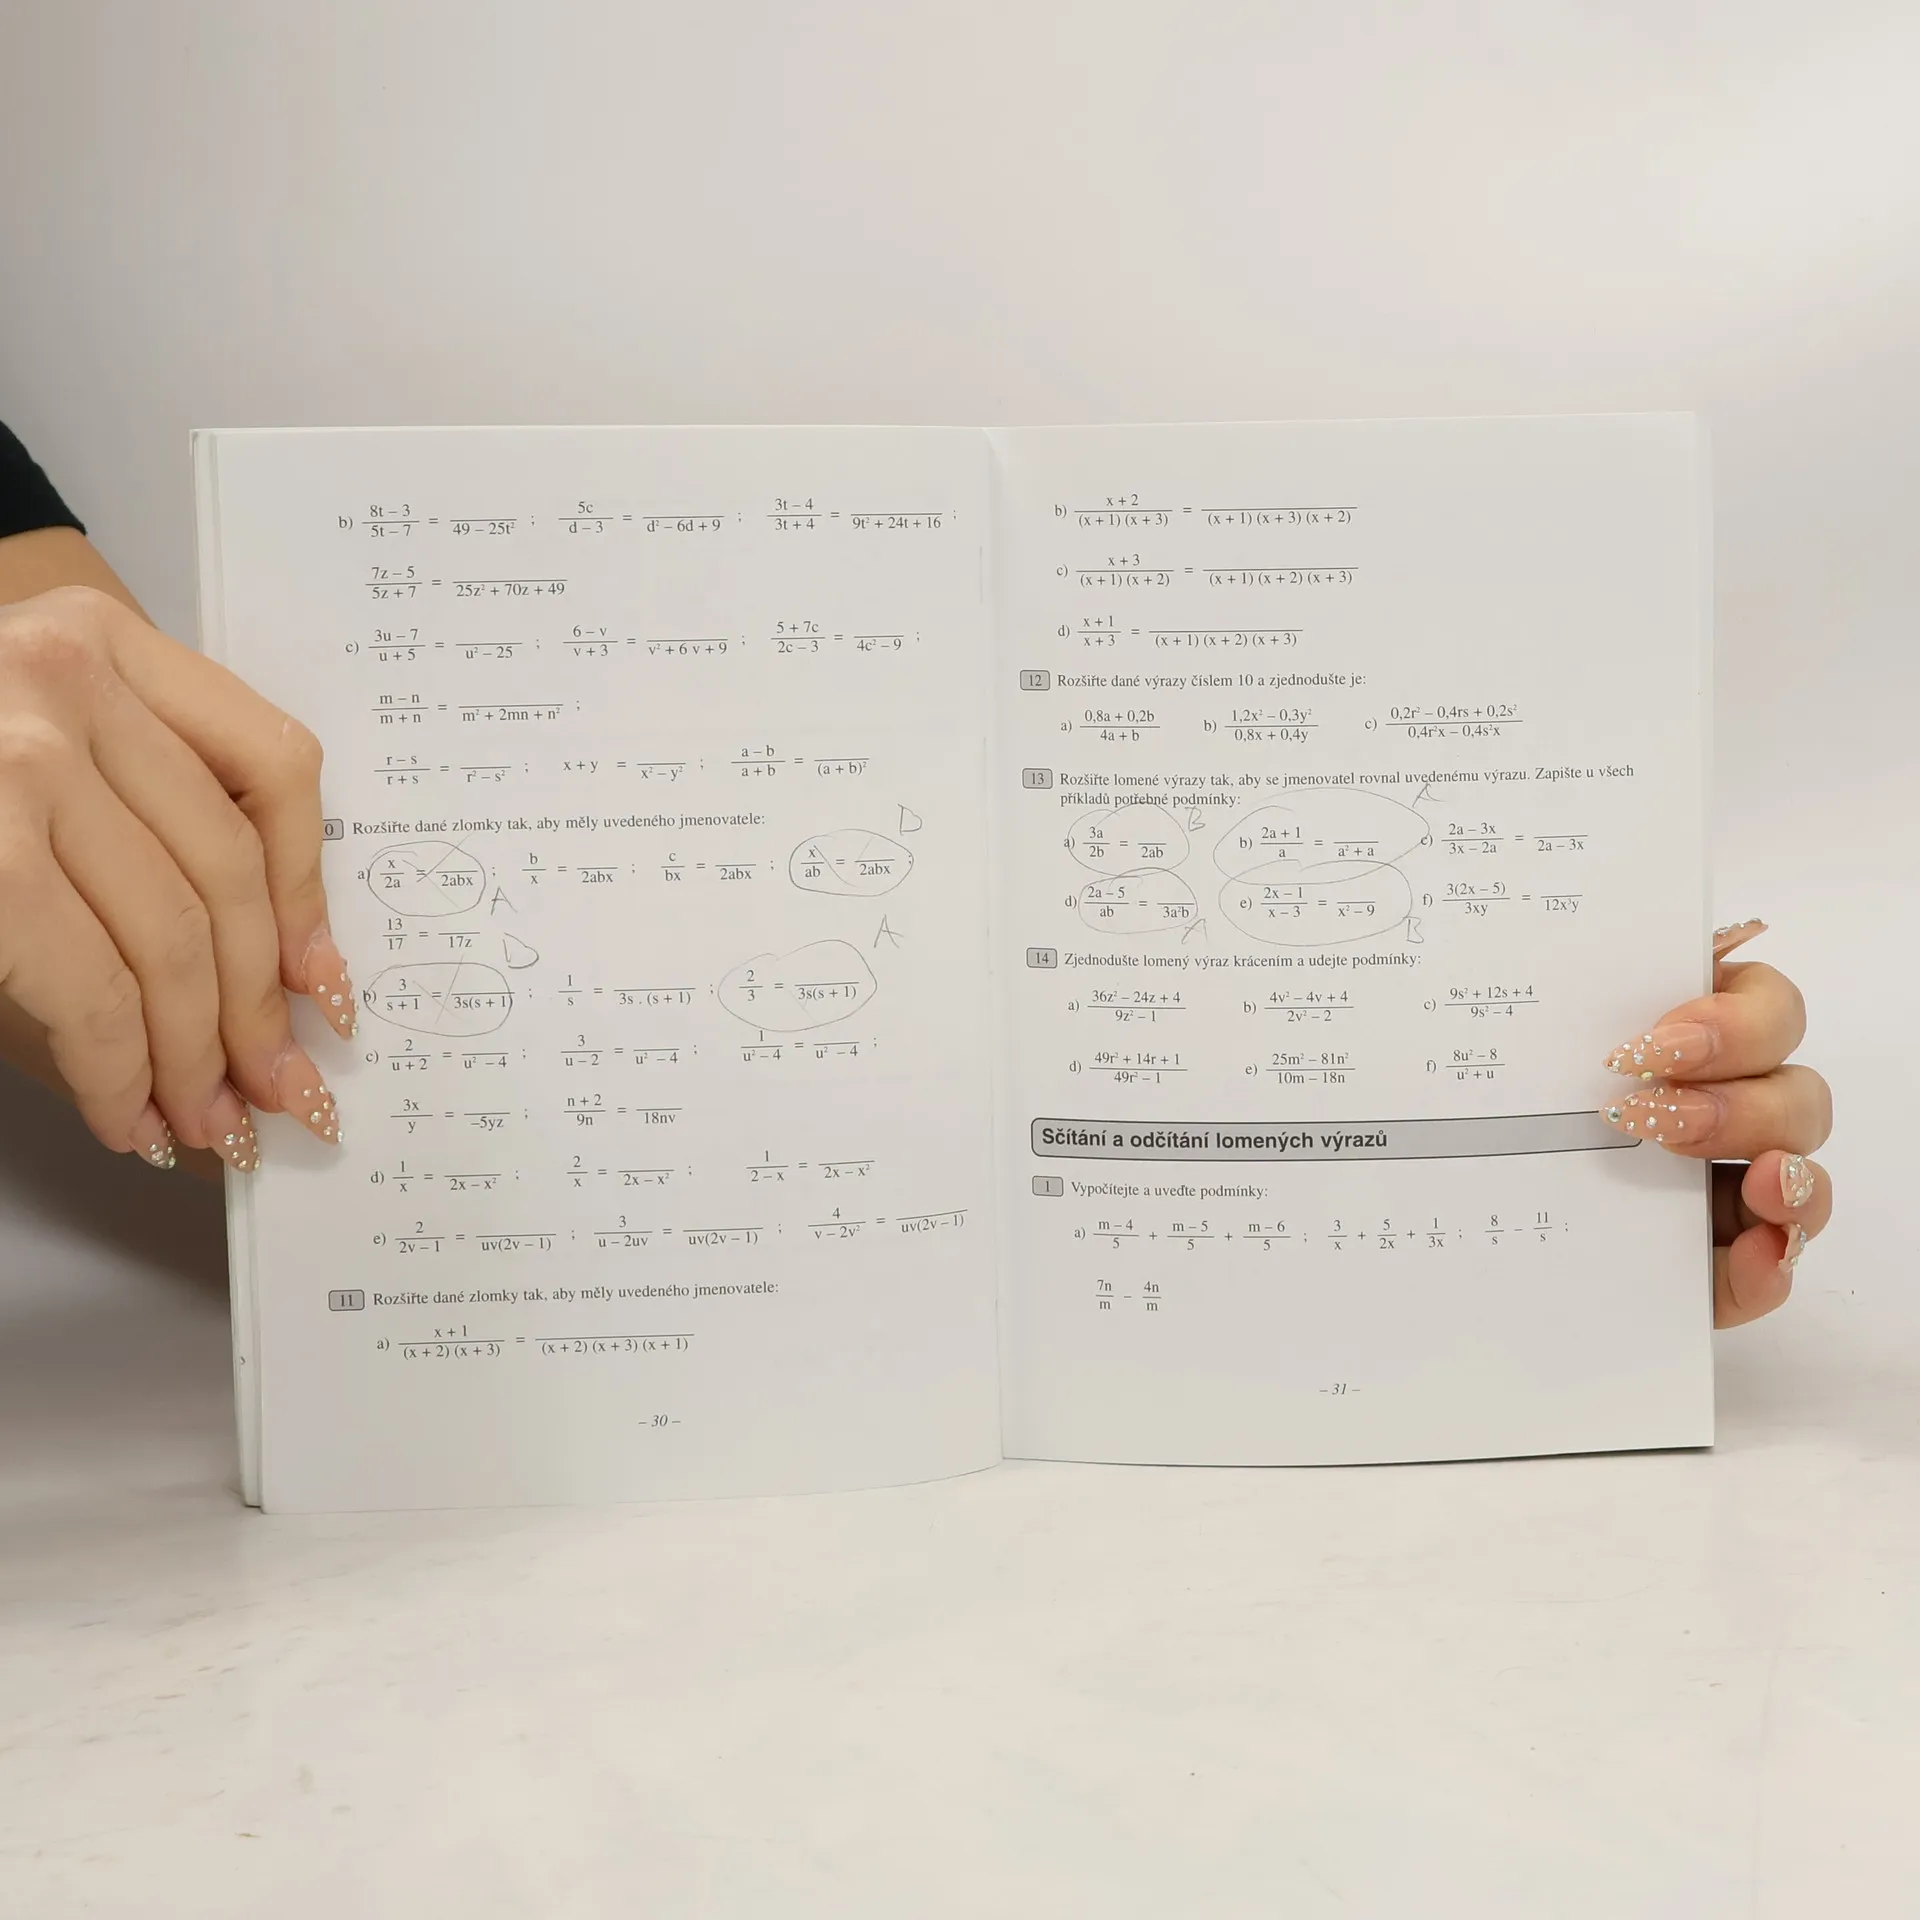 b) (8t – 3)/(5t – 7) = ___/(49 – 25t²) ; 5c/(d – 3) = ___/(d² – 6d + 9) ; (3t – 4)/(3t + 4) = ___/(9t² + 24t + 16) ;
(7z – 5)/(5z + 7) = ___/(25z² + 70z + 49)
c) (3u – 7)/(u + 5) = ___/(u² – 25) ; (6 – v)/(v + 3) = ___/(v² + 6 v + 9) ; (5 + 7c)/(2c – 3) = ___/(4c² – 9) ;
(m – n)/(m + n) = ___/(m² + 2mn + n²) ;
(r – s)/(r + s) = ___/(r² – s²) ; x + y = ___/(x² – y²) ; (a – b)/(a + b) = ___/(a + b)²
0 Rozšiřte dané zlomky tak, aby měly uvedeného jmenovatele: D
a) x/2a = ___/2abx ; b/x = ___/2abx ; c/bx = ___/2abx ; x/ab = ___/2abx ;
A
13/17 = ___/17z D A
b) 3/(s + 1) = ___/3s(s + 1) ; 1/s = ___/3s . (s + 1) ; 2/3 = ___/3s(s + 1)
c) 2/(u + 2) = ___/(u² – 4) ; 3/(u – 2) = ___/(u² – 4) ; 1/(u² – 4) = ___/(u² – 4) ;
3x/y = ___/–5yz ; (n + 2)/9n = ___/18nv
d) 1/x = ___/(2x – x²) ; 2/x = ___/(2x – x²) ; 1/(2 – x) = ___/(2x – x²)
e) 2/(2v – 1) = ___/uv(2v – 1) ; 3/(u – 2uv) = ___/uv(2v – 1) ; 4/(v – 2v²) = ___/uv(2v – 1)
11 Rozšiřte dané zlomky tak, aby měly uvedeného jmenovatele:
a) (x + 1)/(x + 2) (x + 3) = ___/(x + 2) (x + 3) (x + 1)
– 30 –
b) (x + 2)/(x + 1) (x + 3) = ___/(x + 1) (x + 3) (x + 2)
c) (x + 3)/(x + 1) (x + 2) = ___/(x + 1) (x + 2) (x + 3)
d) (x + 1)/(x + 3) = ___/(x + 1) (x + 2) (x + 3)
12 Rozšiřte dané výrazy číslem 10 a zjednodušte je:
a) (0,8a + 0,2b)/(4a + b) b) (1,2x² – 0,3y²)/(0,8x + 0,4y) c) (0,2r² – 0,4rs + 0,2s²)/(0,4r²x – 0,4s²x)
13 Rozšiřte lomené výrazy tak, aby se jmenovatel rovnal uvedenému výrazu. Zapište u všech
příkladů potřebné podmínky: B A
a) 3a/2b = ___/2ab b) (2a + 1)/a = ___/(a² + a) c) (2a – 3x)/(3x – 2a) = ___/(2a – 3x)
d) (2a – 5)/ab = ___/3a²b e) (2x – 1)/(x – 3) = ___/(x² – 9) f) 3(2x – 5)/3xy = ___/12x³y
A B
14 Zjednodušte lomený výraz krácením a udejte podmínky:
a) (36z² – 24z + 4)/(9z² – 1) b) (4v² – 4v + 4)/(2v² – 2) c) (9s² + 12s + 4)/(9s² – 4)
d) (49r² + 14r + 1)/(49r² – 1) e) (25m² – 81n²)/(10m – 18n) f) (8u² – 8)/(u² + u)
Sčítání a odčítání lomených výrazů
1 Vypočítejte a uveďte podmínky:
a) (m – 4)/5 + (m – 5)/5 + (m – 6)/5 ; 3/x + 5/2x + 1/3x ; 8/s – 11/s ;
7n/m – 4n/m
– 31 –